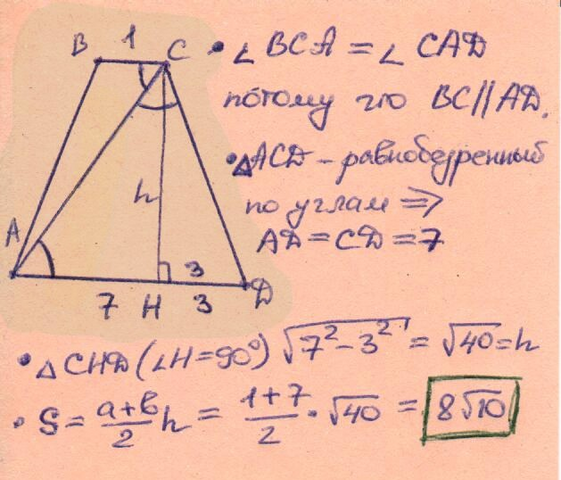 B 1 C
• ∠BCA = ∠CAD
потому что BC||AD.
• △ACD – равнобедренный
по углам ⇒
AD = CD = 7
A
h
3
D
7 H 3
• △CHD (∠H=90°) √7²−3² = √40 = h
• S = a+b/2 h = 1+7/2 · √40 = 8√10